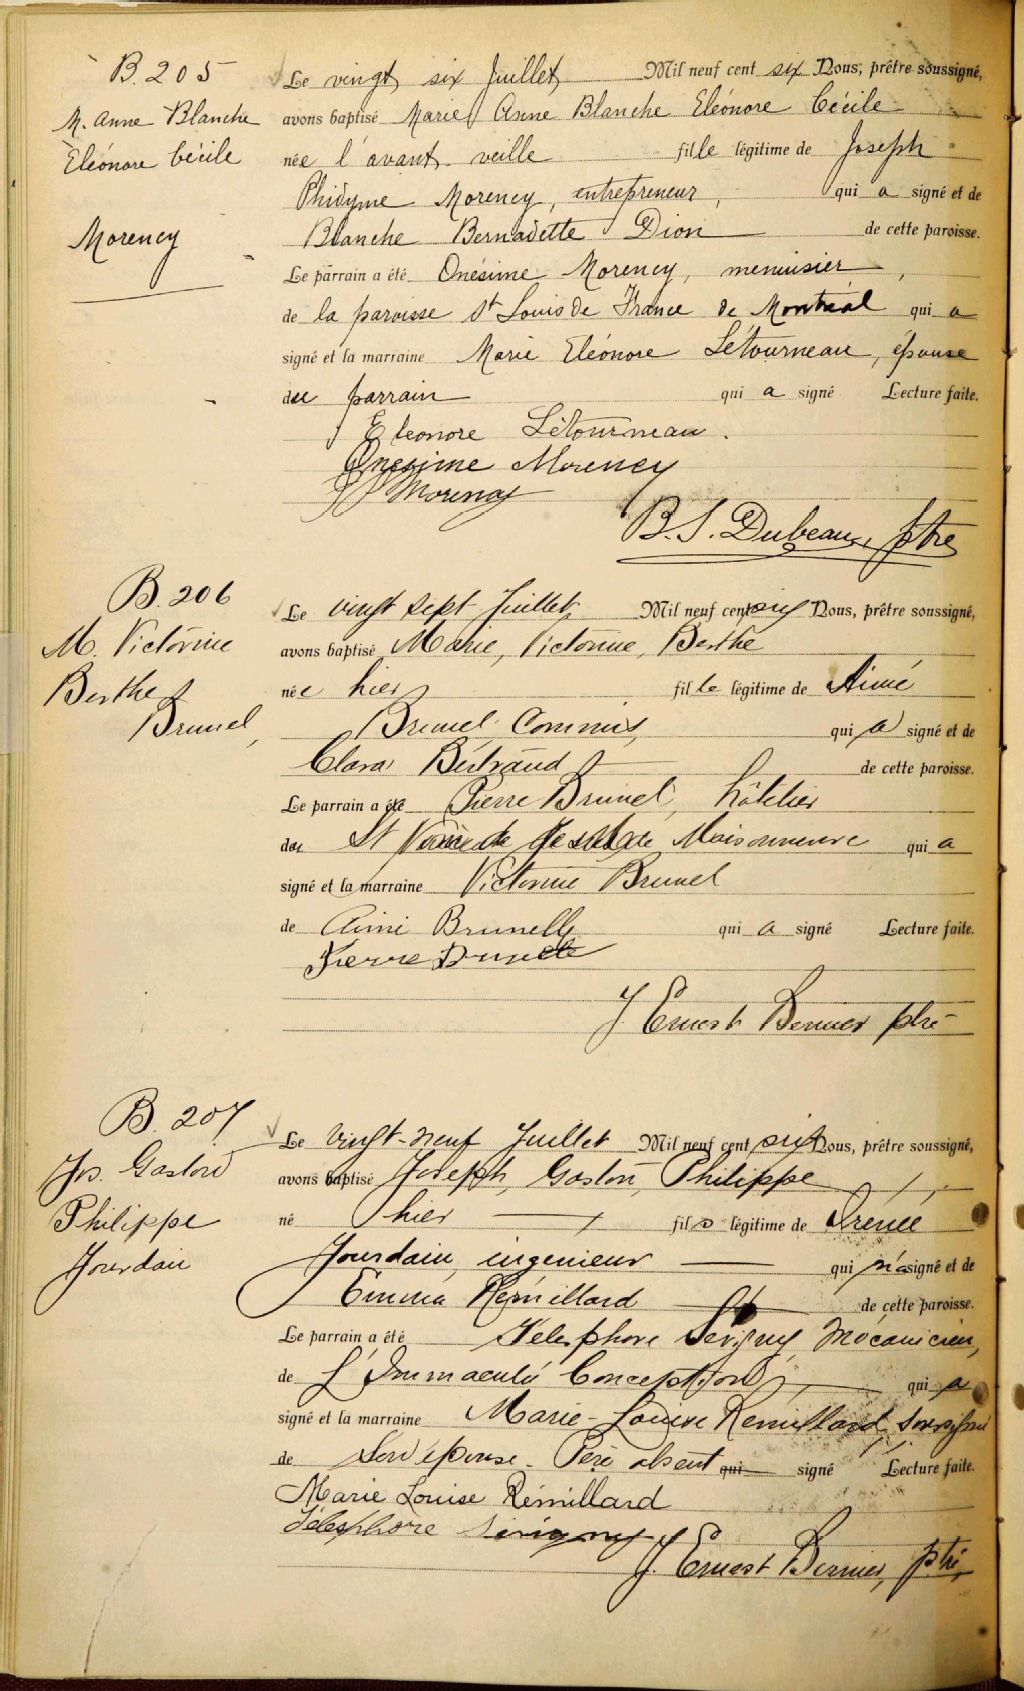 B. 205
M. Anne Blanche
Eléonore Cécile
Morency
Le vingt six Juillet Mil neuf cent six Nous, prêtre soussigné,
avons baptisé Marie Anne Blanche Eléonore Cécile
née l'avant-veille fille légitime de Joseph
Phidyme Morency, entrepreneur, qui a signé et de
Blanche Bernadette Dion de cette paroisse.
Le parrain a été Onésime Morency, menuisier,
de la paroisse St Louis de France de Montréal qui a
signé et la marraine Marie Eléonore Létourneau, épouse
du parrain qui a signé Lecture faite.
Eleonore Létourneau.
Onesime Morency
J P Morency
B. S. Dubeau, ptre
B. 206
M. Victorine
Berthe
Brunel,
Le vingt sept Juillet Mil neuf cent six Nous, prêtre soussigné,
avons baptisé Marie, Victorine, Berthe
née hier fille légitime de Aimé
Brunel, Commis, qui a signé et de
Clara Bertrand de cette paroisse.
Le parrain a été Pierre Brunel, hôtelier
de St de Maisonneuve qui a
signé et la marraine Victorine Brunel
de Aimé Brunelle qui a signé Lecture faite.
Pierre Brunelle
J Ernest Bernier ptre
B. 207
Jos. Gaston
Philippe
Jourdain
Le vingt-neuf Juillet Mil neuf cent six Nous, prêtre soussigné,
avons baptisé Joseph, Gaston, Philippe
né hier fils légitime de Irénée
Jourdain, ingenieur qui n'a signé et de
Emma Rémillard de cette paroisse.
Le parrain a été Télesphore Sévigny, Mécanicien,
de L'Immaculé Conception, qui a
signé et la marraine Marie-Louise Remillard, soussigné
de Son épouse. Père absent qui signé Lecture faite.
Marie Louise Rémillard
Télesphore Sévigny
J. Ernest Bernier, ptre,